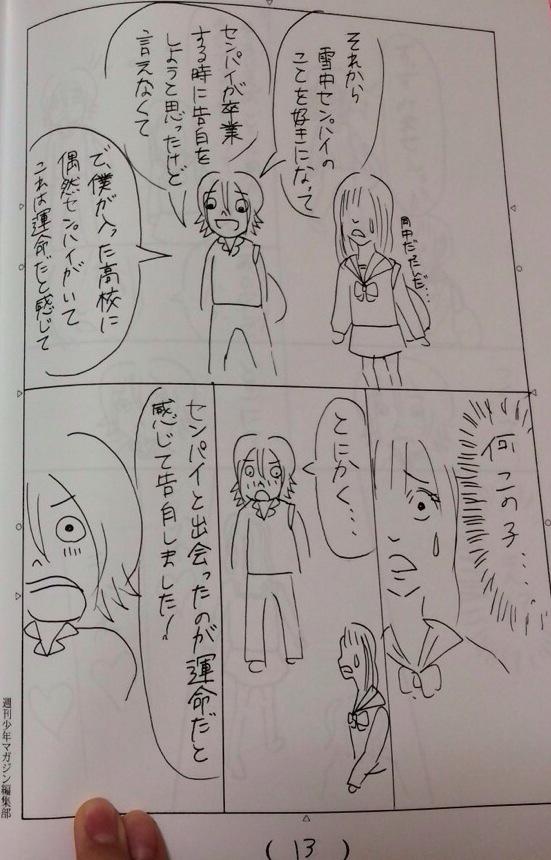 それから
雪中センパイの
ことを好きになって
センパイが卒業
する時に告白を
しようと思ったけど
言えなくて
で、僕が入った高校に
偶然センパイがいて
これは運命だと感じて
何この子…
とにかく…
センパイと出会ったのが運命だと
感じて告白しました!
週刊少年マガジン編集部
(13)